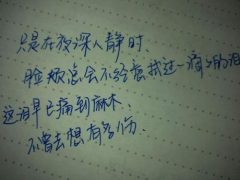 只是在夜深人静时
脸颊总会不经意拭过一滴滴的泪
这泪早已痛到麻木.
不曾去想有多伤.